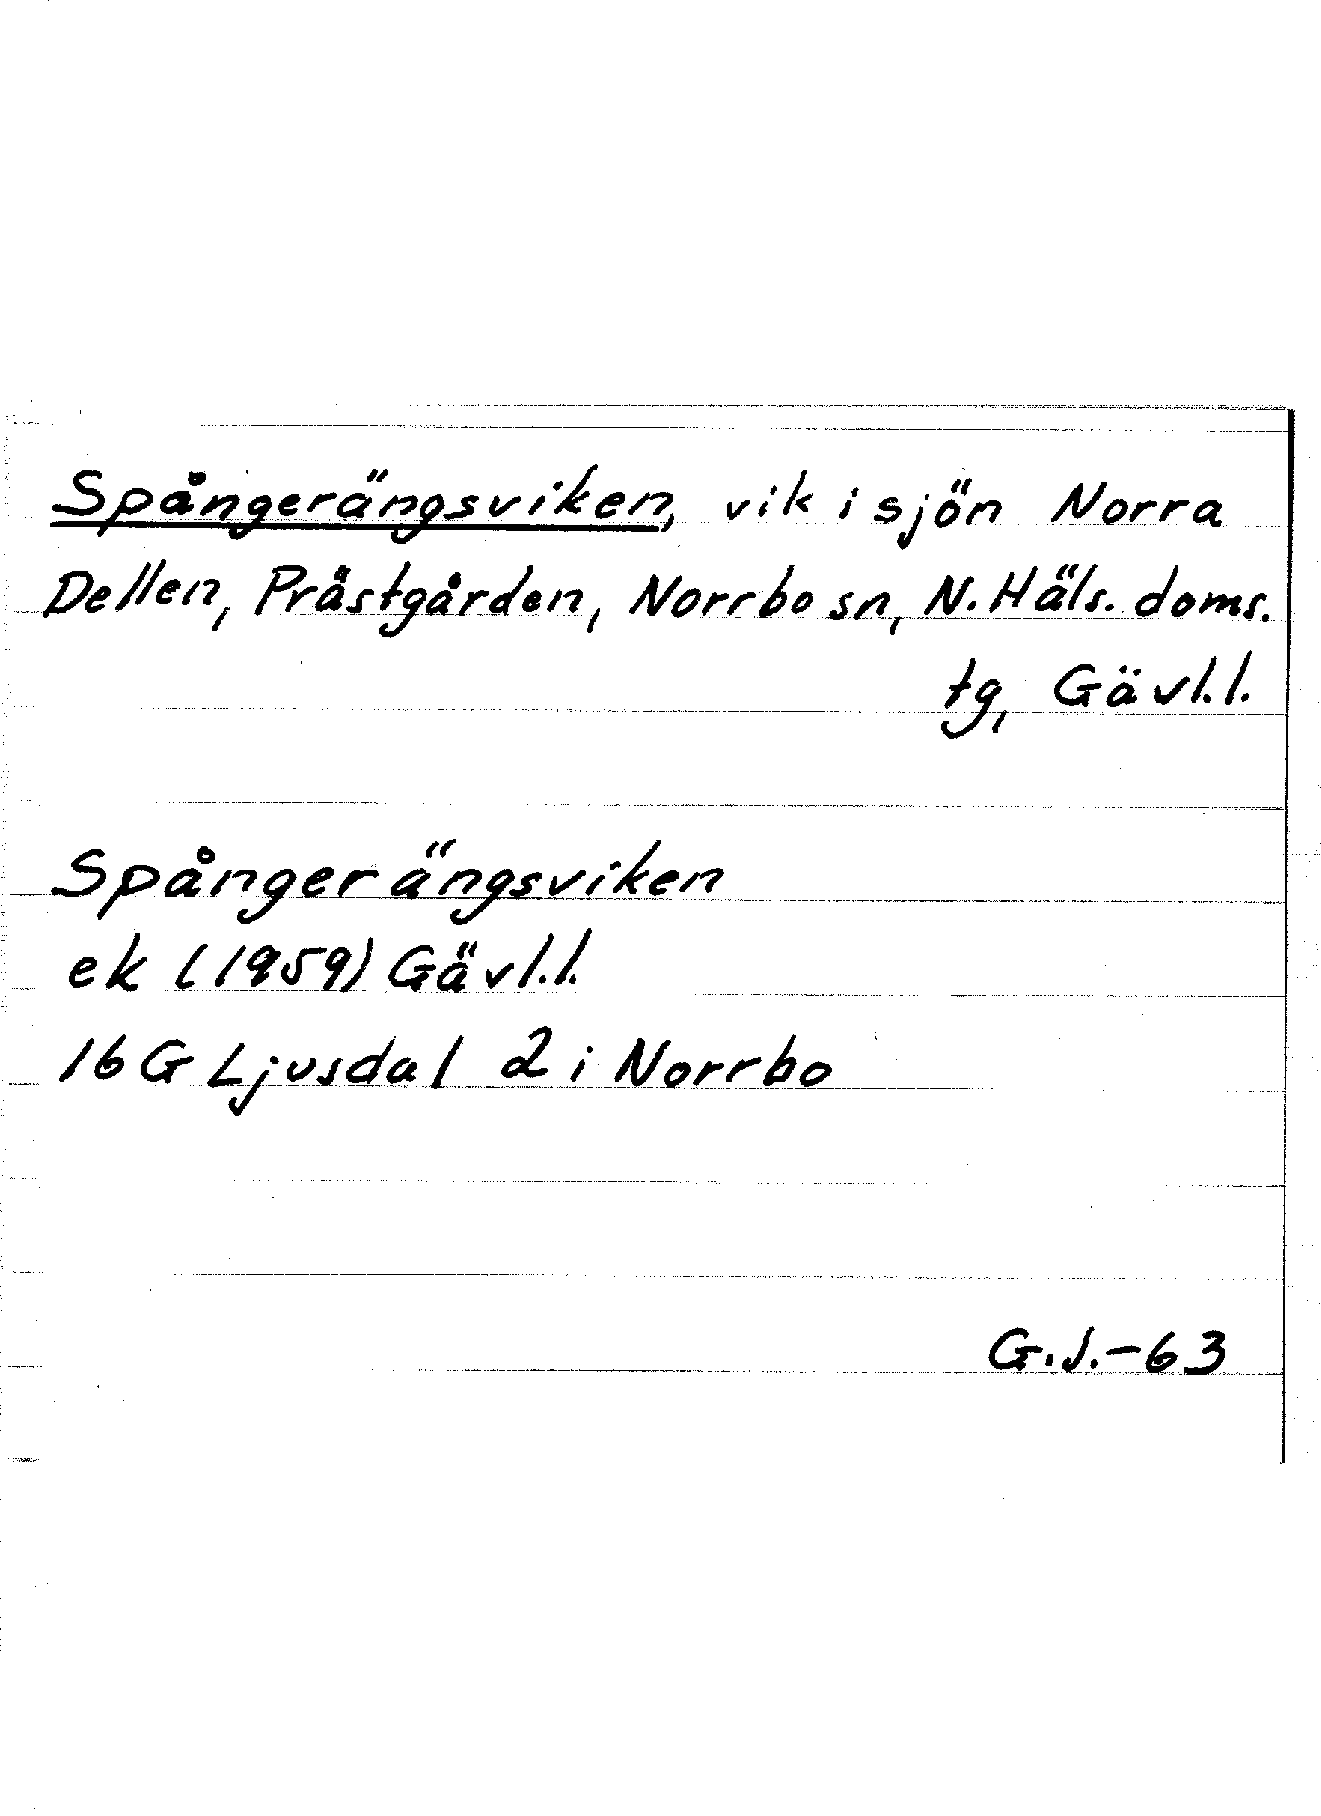 Spångerängsviken, vik i sjön Norra
Dellen, Prästgården, Norrbo sn, N. Häls. doms.
tg, Gävl.l.
Spångerängsviken
ek (1959) Gävl.l.
16 G Ljusdal 2 i Norrbo
G.J.-63